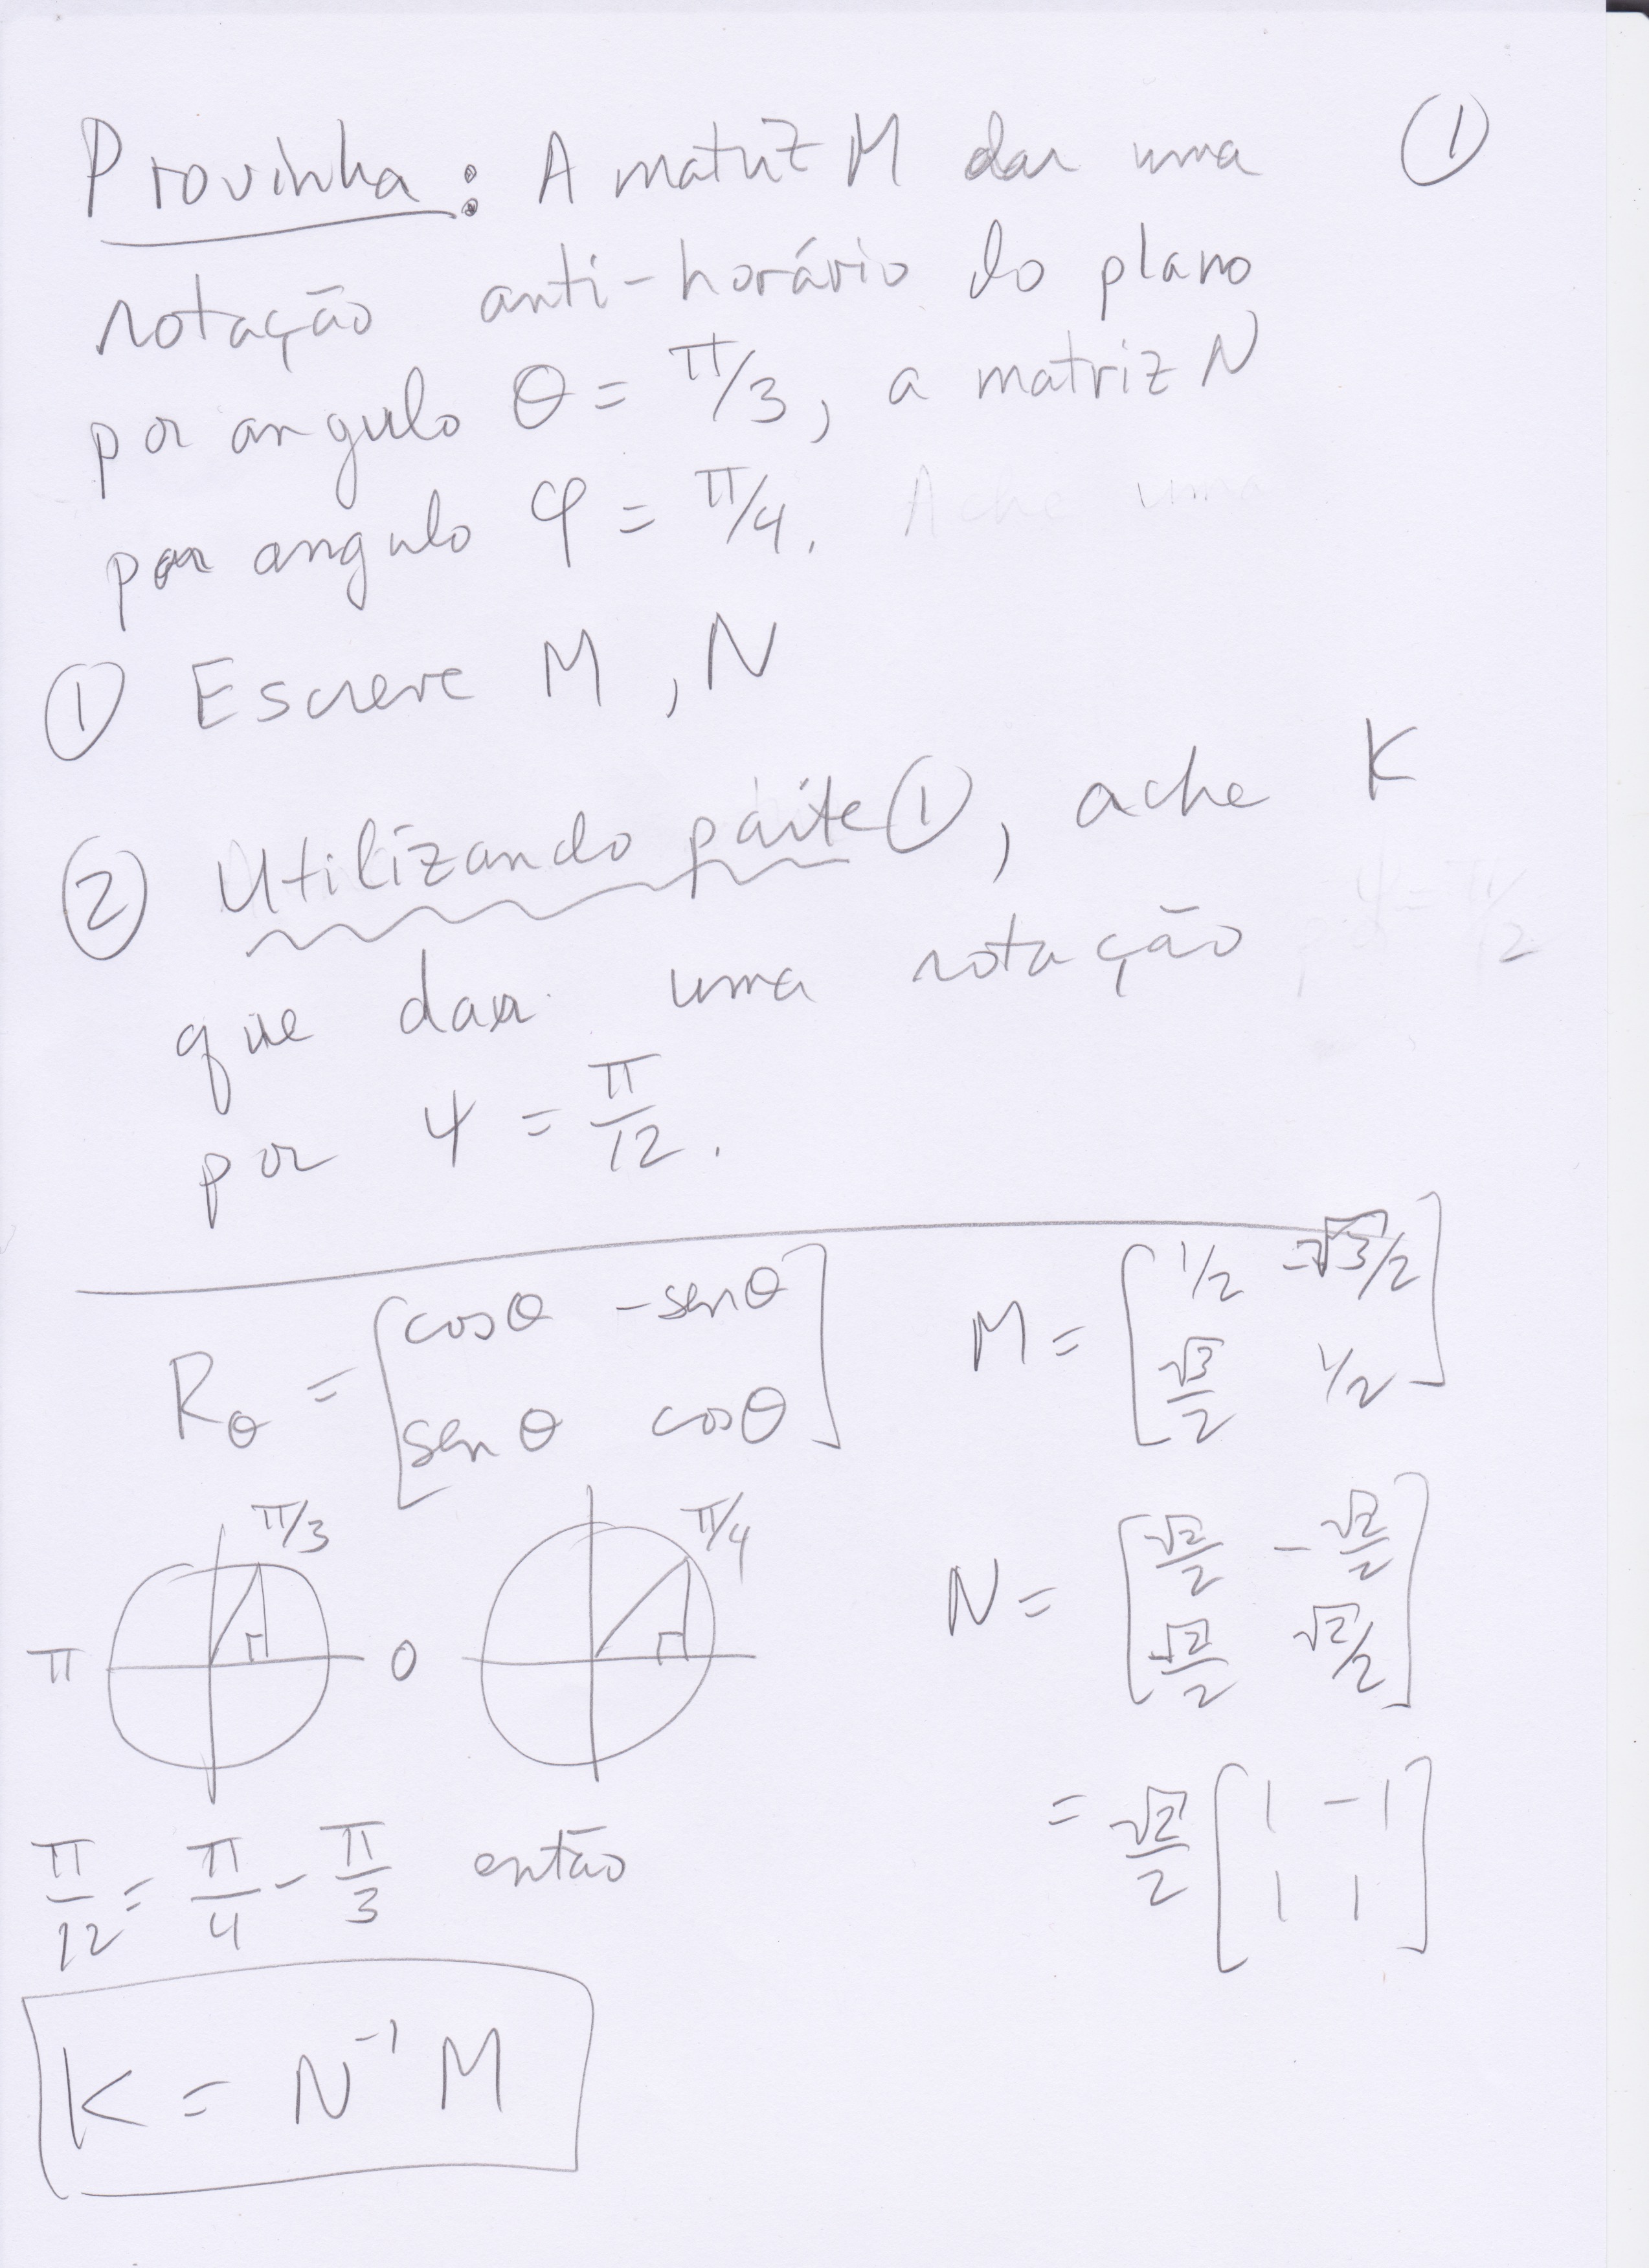 Provinha: A matriz M dar uma ①
rotação anti-horário do plano
por angulo θ = π/3, a matriz N
por angulo φ = π/4. Ache uma
① Escreve M, N
② Utilizando parte ①, ache K
que dar uma rotação
por ψ = π/12.
R_θ = [cosθ -senθ; senθ cosθ]
M = [1/2 -√3/2; √3/2 1/2]
π/3
π 0
π/4
N = [√2/2 -√2/2; √2/2 √2/2]
= √2/2 [1 -1; 1 1]
π/12 = π/4 - π/3 então
K = N⁻¹ M